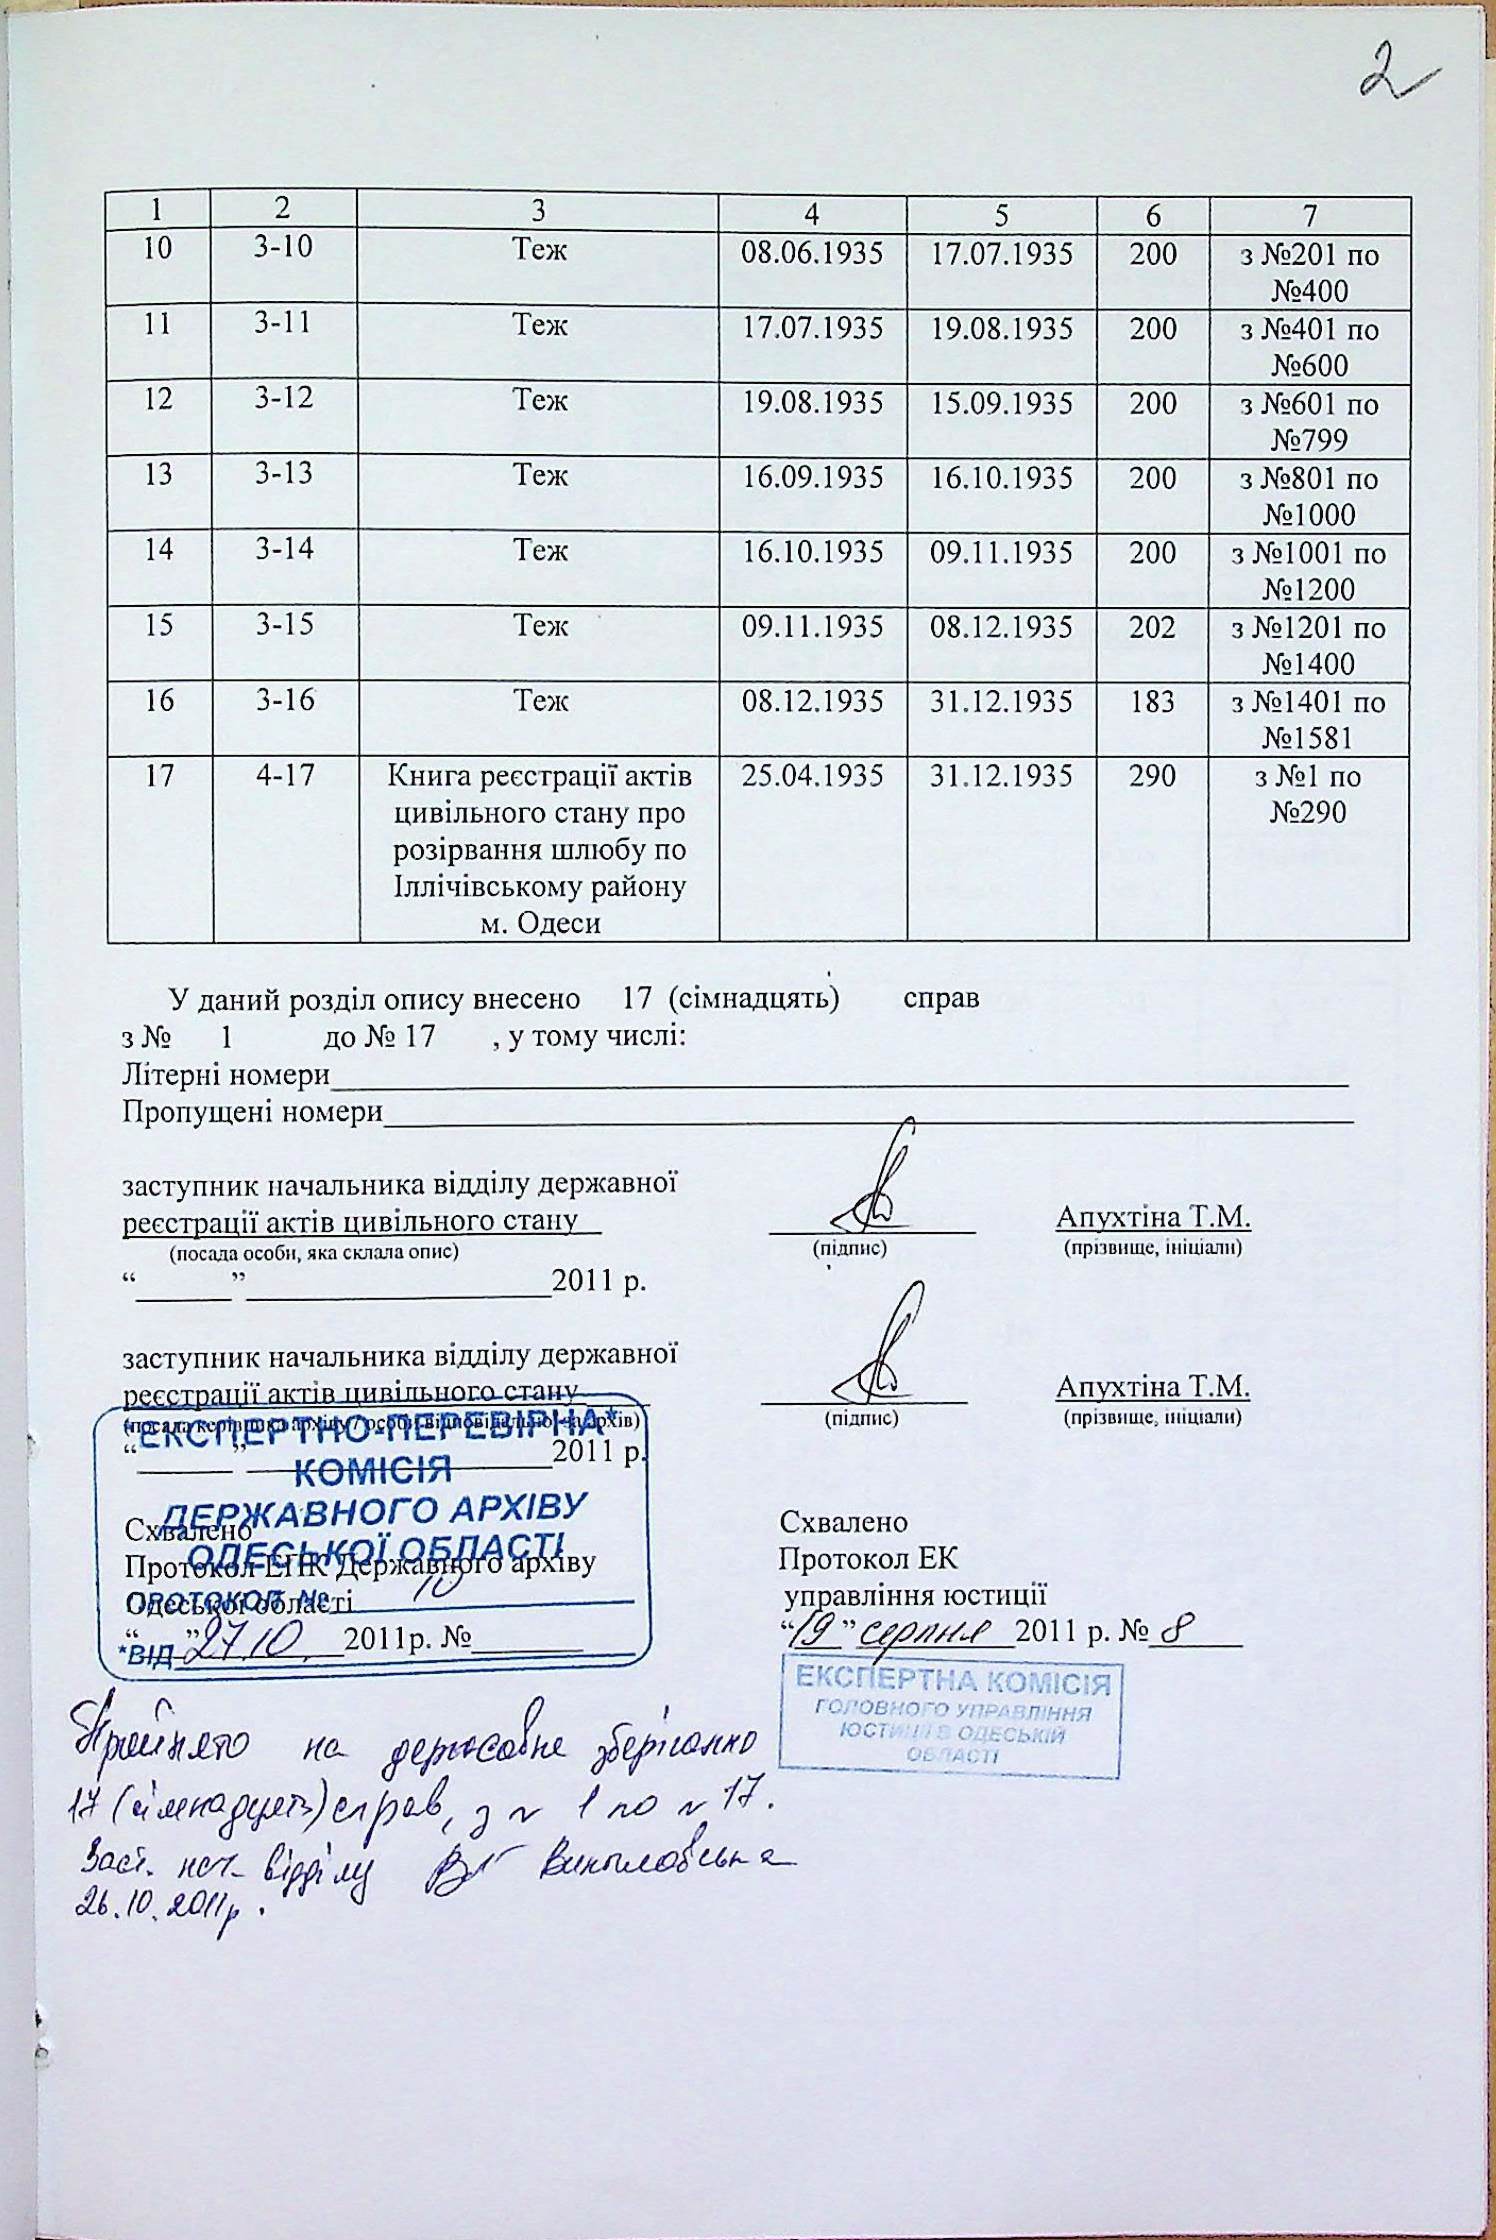 2
1 2 3 4 5 6 7
10 3-10 Теж 08.06.1935 17.07.1935 200 з №201 по
№400
11 3-11 Теж 17.07.1935 19.08.1935 200 з №401 по
№600
12 3-12 Теж 19.08.1935 15.09.1935 200 з №601 по
№799
13 3-13 Теж 16.09.1935 16.10.1935 200 з №801 по
№1000
14 3-14 Теж 16.10.1935 09.11.1935 200 з №1001 по
№1200
15 3-15 Теж 09.11.1935 08.12.1935 202 з №1201 по
№1400
16 3-16 Теж 08.12.1935 31.12.1935 183 з №1401 по
№1581
17 4-17 Книга реєстрації актів 25.04.1935 31.12.1935 290 з №1 по
цивільного стану про №290
розірвання шлюбу по
Іллічівському району
м. Одеси
У даний розділ опису внесено 17 (сімнадцять) справ
з № 1 до № 17 , у тому числі:
Літерні номери
Пропущені номери
заступник начальника відділу державної
реєстрації актів цивільного стану Апухтіна Т.М.
(посада особи, яка склала опис) (підпис) (прізвище, ініціали)
“ ” 2011 р.
заступник начальника відділу державної
реєстрації актів цивільного стану Апухтіна Т.М.
(посада керівника архіву / особи відповідальної за архів) (підпис) (прізвище, ініціали)
“ ” 2011 р.
*ЕКСПЕРТНО-ПЕРЕВІРНА*
КОМІСІЯ
ДЕРЖАВНОГО АРХІВУ
ОДЕСЬКОЇ ОБЛАСТІ
ПРОТОКОЛ № 10
*ВІД 27.10.
Схвалено
Протокол ЕПК Державного архіву
Одеської області
“ ” 2011р. №
Схвалено
Протокол ЕК
управління юстиції
“19” серпня 2011 р. № 8
ЕКСПЕРТНА КОМІСІЯ
ГОЛОВНОГО УПРАВЛІННЯ
ЮСТИЦІЇ В ОДЕСЬКІЙ
ОБЛАСТІ
Прийнято на державне зберігання
17 (сімнадцять) справ, з № 1 по № 17.
Заст. нач. відділу
26.10.2011р.